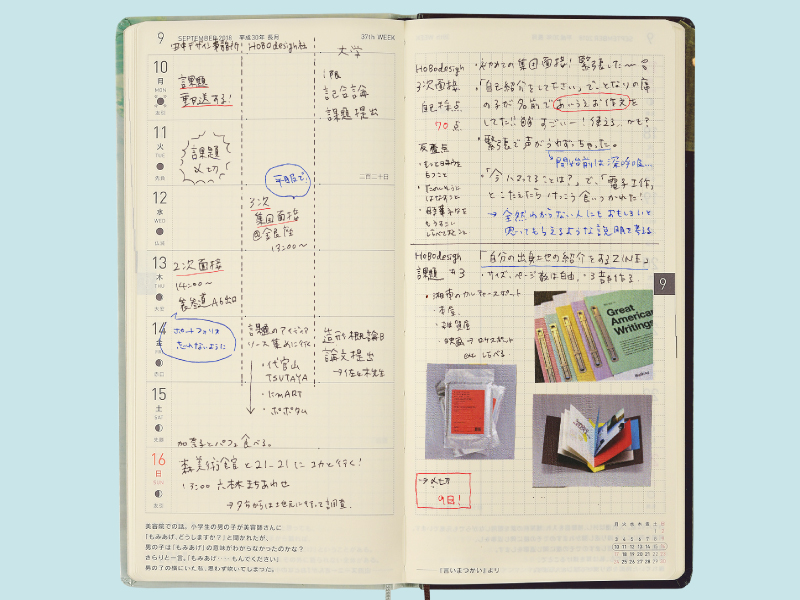 9 SEPTEMBER 2018 平成30年 長月 37th WEEK
田中デザイン事務所 HoBodesign社 大学
10
月
MON
課題
郵送する!
1限
記号論
課題提出
11
火
TUE
先負
課題
〆切
二百二十日
12
水
WED
仏滅
平服で!
3次
集団面接
13:00〜
13
木
THU
大安
2次面接
14:00〜
表参道 A6出口
14
金
FRI
赤口
ポートフォリオ
忘れないように
課題のアイディア
ソース集めに行く
・代官山
TSUTAYA
・ポポタム
造形概論B
論文提出
→佐々木先生
15
土
SAT
先勝
加菜子とパフェ食べる。
16
日
SUN
友引
森美術館と21_21にユカと行く!
13:00 六本木まちあわせ
→夕方からは地元にもどって調査
美容院での話。小学生の男の子が美容師さんに
「もみあげ、どうしますか?」と聞かれたが、
男の子は「もみあげ」の意味がわからなかったのかな?
さらりと一言。「もみあげ……もんでください」
男の子の横にいた私、思わず吹いてしまった。
HoBodesign
3次面接
自己採点
70点
・はじめての集団面接!緊張した〜
・「自己紹介をしてください」で、となりの席
の子が名前であいうえお作文を
してた!!皆すごいー!使える…かも?
反省点
・緊張で声がうわずっちゃった。
開始前は深呼吸…
・もっと自信を
もつこと
・たのしそうに
はなすこと
・時事ネタを
もうすこし
しらべておくこと
・「今ハマってることは?」で、「電子工作」
とこたえたらけっこう食いつかれた!
→全然わからない人にもおもしろいと
思ってもらえるような説明を考える
HoBodesign
課題 #3
「自分の出身土地の紹介をするZINE」
・サイズ、ページ数は自由。・3部作る。
・湘南のカルチャースポット
・本屋
・雑貨屋
・映画→ロケスポット
etc しらべる。
Great
American
Writings
→〆切
9日!
9
月 火 水 木 金 土 日
1 2
3 4 5 6 7 8 9
10 11 12 13 14 15 16
17 18 19 20 21 22 23
24 25 26 27 28 29 30
『言いまつがい』より